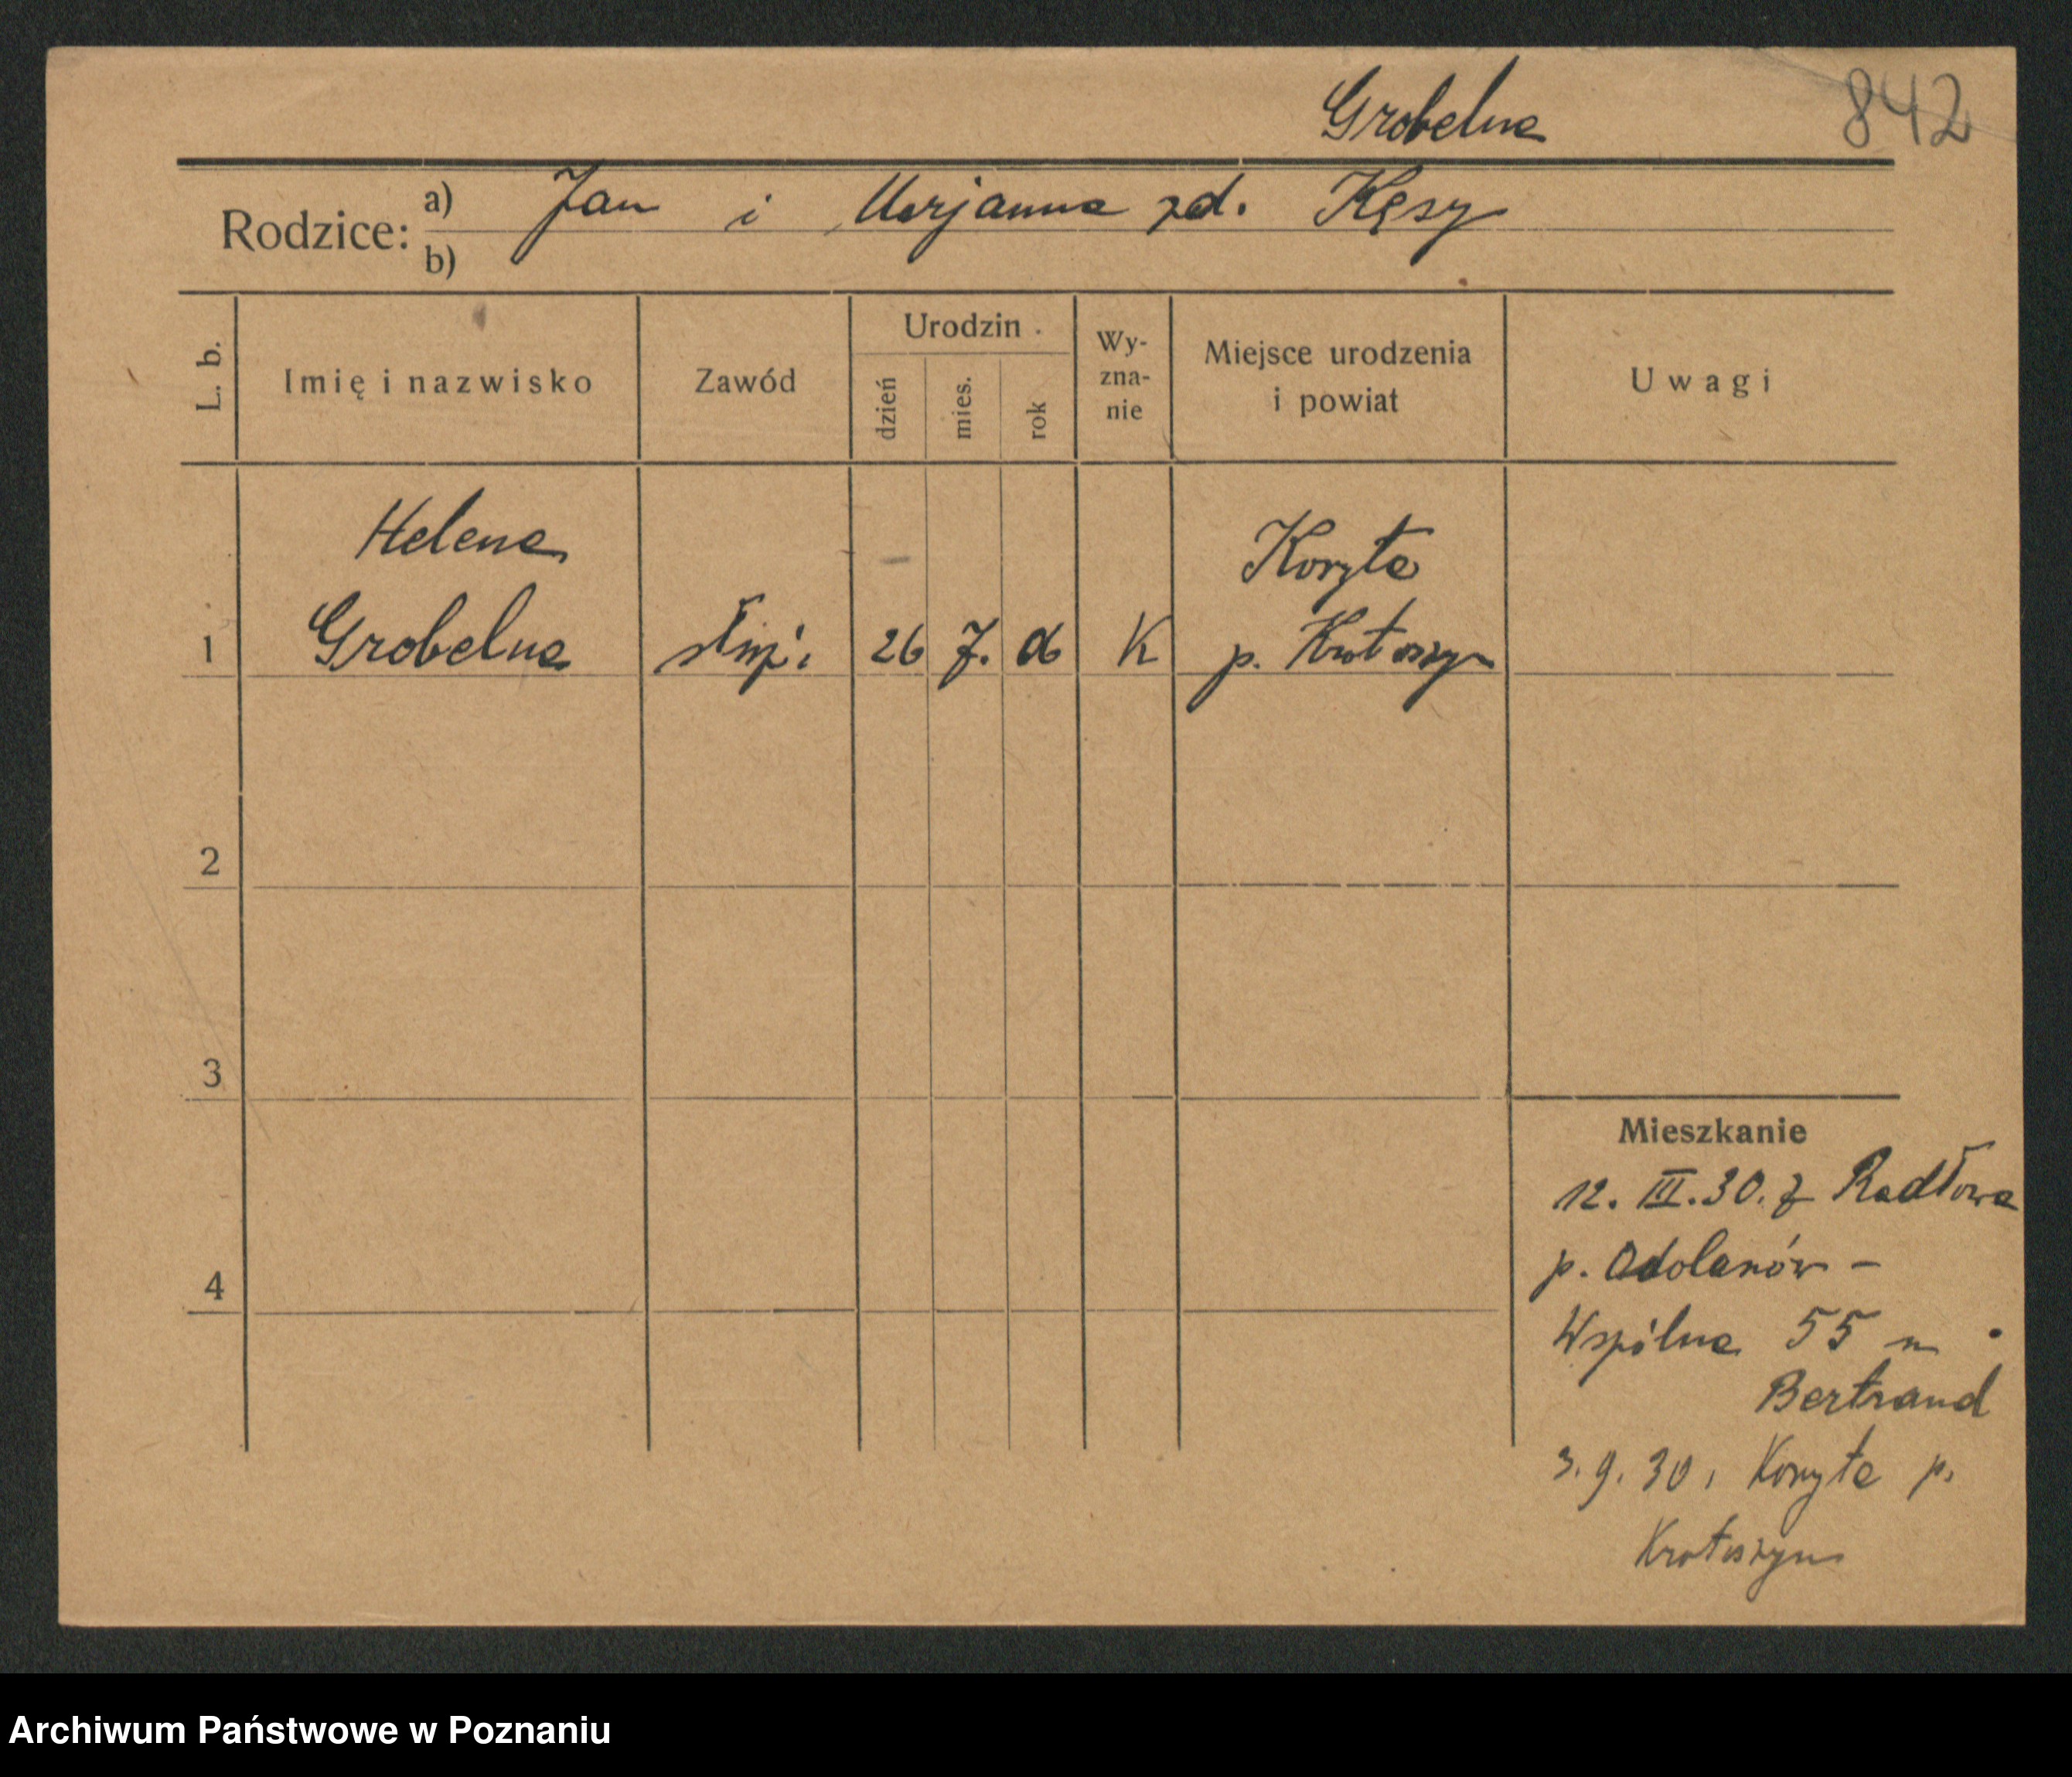 Grobelna
842
Rodzice: a) Jan i Marjanna zd. Kęsy
b)
L. b.
Imię i nazwisko
Zawód
Urodzin
dzień
mies.
rok
Wy-
zna-
nie
Miejsce urodzenia
i powiat
Uwagi
Helena
Koryta
1 Grobelna 26 7. K p. Krotoszyn
2
3
4
Mieszkanie
12. III. 30. z Radłowa
p. Odolanów -
Wspólna 55 m
Bertrand
3. 9. 30, Koryta p.
Krotoszyn
Archiwum Państwowe w Poznaniu